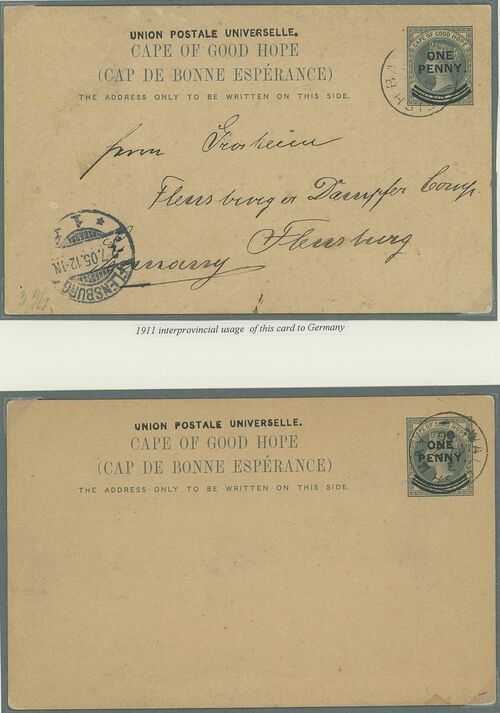 UNION POSTALE UNIVERSELLE.
CAPE OF GOOD HOPE
(CAP DE BONNE ESPÉRANCE)
THE ADDRESS ONLY TO BE WRITTEN ON THIS SIDE.
CAPE OF GOOD HOPE
ONE
PENNY.
Flensburger Dampfer Comp.
Flensburg
Germany
FLENSBURG
1
7.05.12-1N.
1911 interprovincial usage of this card to Germany
UNION POSTALE UNIVERSELLE.
CAPE OF GOOD HOPE
(CAP DE BONNE ESPÉRANCE)
THE ADDRESS ONLY TO BE WRITTEN ON THIS SIDE.
CAPE OF GOOD HOPE
ONE
PENNY.